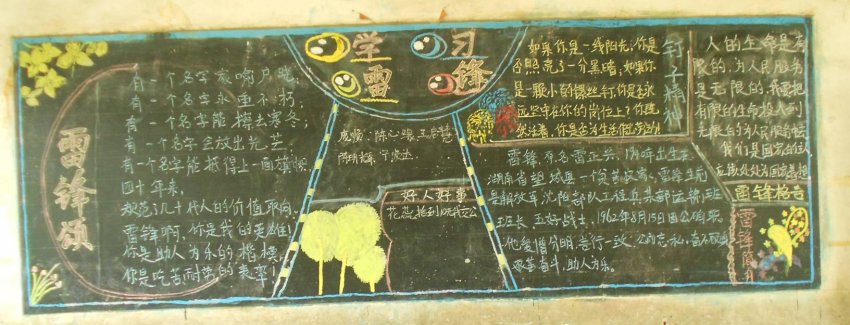 雷锋颂
有一个名字
有一个名字永垂不朽,
有一个名字能擦去寒冬,
有一个名字会放出光芒,
有一个名字能抵得上一面旗帜,
四十年来,
规范了几十代人的价值取向。
雷锋啊,你是我的英雄!
你是助人为乐的楷模,
你是吃苦耐劳的表率!
学习
雷锋
好人好事
钉子精神
如果你是一线阳光,你是
否照亮了一分黑暗;如果你
是一颗小的螺丝钉你是否永
远坚守在你的岗位上?
人的生命是有
限的,为人民服务
是无限的,我要把
有限的生命投入到
无限的为人民服务中去
我们是国家的主人
应该处处为国家着想
雷锋格言
雷锋,原名雷正兴,
湖南省望城县一个贫苦农家,雷锋生前
是解放军沈阳部队工程兵某部运输班
班长、五好战士,1962年8月15日因公殉职,
他爱憎分明、言行一致、公而忘私、奋不顾身、
艰苦奋斗、助人为乐。